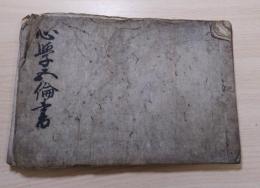 心学五倫書